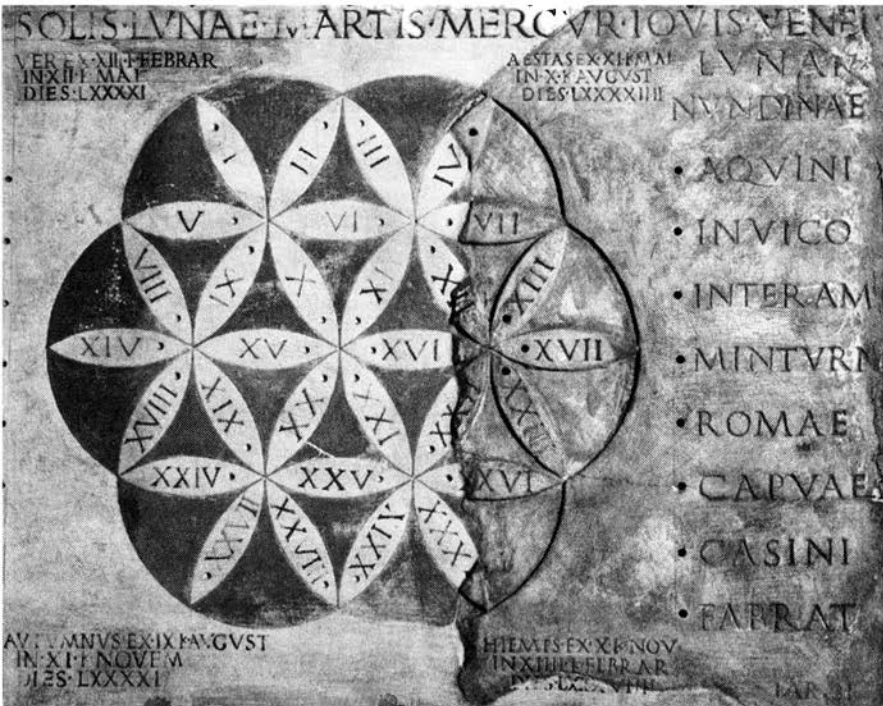 SOLIS·LVNAE· ARTIS·MERCVR·IOVIS·VENE
VER EX·XII·FEBRAR
IN XII MAI
DIES·LXXXXI
AESTAS EX XII MAI
IN X AVGVST
DIES LXXXXIIII
LVNAR
NVNDINAE
•AQVINI
•IN VICO
•INTERAM
•MINTVRN
•ROMAE
•CAPVAE
•CASINI
•FABRAT
I II III IV
V VI VII
VIII IX X XI XIII
XIV XV XVI XVII
XVIII XIX XX XXI XXIII
XXIV XXV XVI
XXVII XXVIII XXIX XXX
AVTVMNVS EX IX AVGVST
IN XI NOVEM
DIES LXXXXI
HIEMIS EX XI NOV
IN XIII FEBRAR